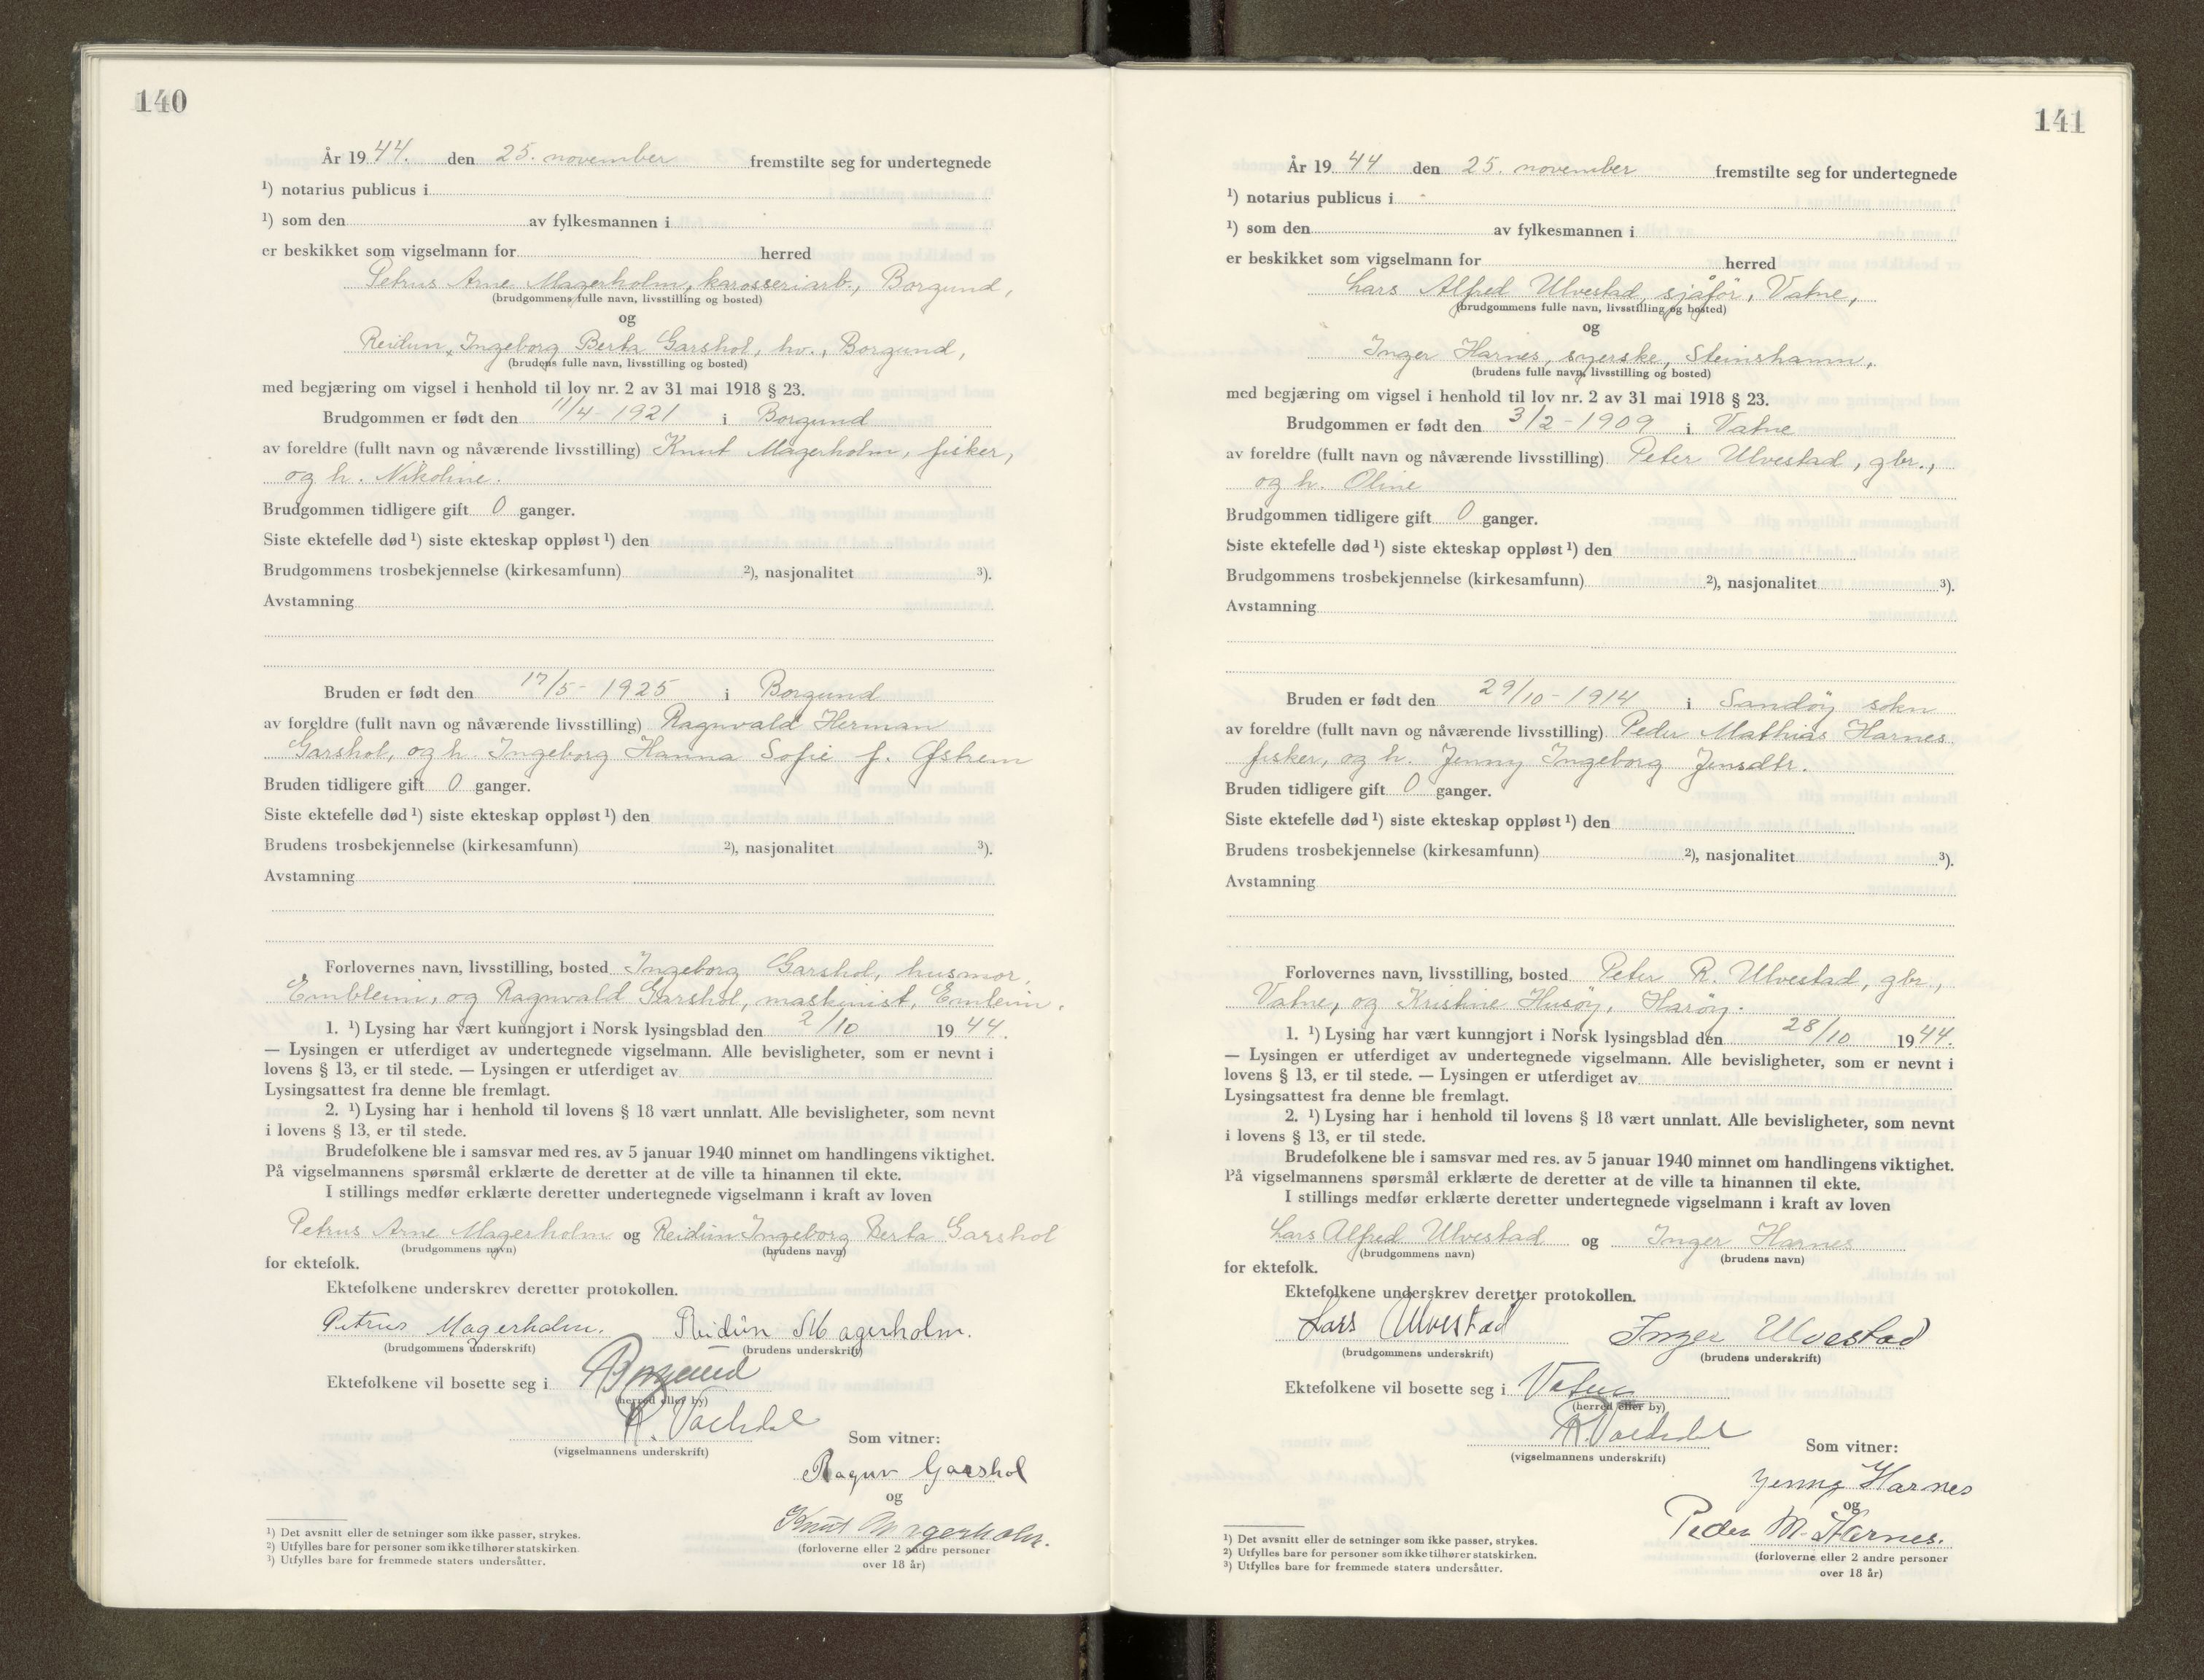 140
År 19 44. den 25. november fremstilte seg for undertegnede
¹) notarius publicus i
¹) som den av fylkesmannen i
er beskikket som vigselmann for herred
Petrus Arne Magerholm, karosseriarb., Borgund,
(brudgommens fulle navn, livsstilling og bosted)
og
Reidun Ingeborg Berta Garshol, hv., Borgund,
(brudens fulle navn, livsstilling og bosted)
med begjæring om vigsel i henhold til lov nr. 2 av 31 mai 1918 § 23.
Brudgommen er født den 11/4 - 1921 i Borgund
av foreldre (fullt navn og nåværende livsstilling) Knut Magerholm, fisker,
og h. Nikoline.
Brudgommen tidligere gift 0 ganger.
Siste ektefelle død ¹) siste ekteskap oppløst ¹) den
Brudgommens trosbekjennelse (kirkesamfunn) ²), nasjonalitet ³).
Avstamning
Bruden er født den 17/5 - 1925 i Borgund
av foreldre (fullt navn og nåværende livsstilling) Ragnvald Herman
Garshol, og h. Ingeborg Hanna Sofie f. Østrem
Bruden tidligere gift 0 ganger.
Siste ektefelle død ¹) siste ekteskap oppløst ¹) den
Brudens trosbekjennelse (kirkesamfunn) ²), nasjonalitet ³).
Avstamning
Forlovernes navn, livsstilling, bosted Ingeborg Garshol, husmor,
Embleim, og Ragnvald Garshol, maskinist, Emleim.
1. ¹) Lysing har vært kunngjort i Norsk lysingsblad den 2/10 19 44.
— Lysingen er utferdiget av undertegnede vigselmann. Alle bevisligheter, som er nevnt i
lovens § 13, er til stede. — Lysingen er utferdiget av
Lysingsattest fra denne ble fremlagt.
2. ¹) Lysing har i henhold til lovens § 18 vært unnlatt. Alle bevisligheter, som nevnt
i lovens § 13, er til stede.
Brudefolkene ble i samsvar med res. av 5 januar 1940 minnet om handlingens viktighet.
På vigselmannens spørsmål erklærte de deretter at de ville ta hinannen til ekte.
I stillings medfør erklærte deretter undertegnede vigselmann i kraft av loven
Petrus Arne Magerholm og Reidun Ingeborg Berta Garshol
(brudgommens navn) (brudens navn)
for ektefolk.
Ektefolkene underskrev deretter protokollen.
Petrus Magerholm. Reidun Magerholm.
(brudgommens underskrift) (brudens underskrift)
Ektefolkene vil bosette seg i Borgund
(herred eller by)
(vigselmannens underskrift)
Som vitner:
Ragnv Garshol
og
Knut Magerholm.
(forloverne eller 2 andre personer
over 18 år)
¹) Det avsnitt eller de setninger som ikke passer, strykes.
²) Utfylles bare for personer som ikke tilhører statskirken.
³) Utfylles bare for fremmede staters undersåtter.
141
År 19 44 den 25. november fremstilte seg for undertegnede
¹) notarius publicus i
¹) som den av fylkesmannen i
er beskikket som vigselmann for herred
Lars Alfred Ulvestad, sjåför, Vatne,
(brudgommens fulle navn, livsstilling og bosted)
og
Inger Harnes, syerske, Steinshamn,
(brudens fulle navn, livsstilling og bosted)
med begjæring om vigsel i henhold til lov nr. 2 av 31 mai 1918 § 23.
Brudgommen er født den 3/2 - 1909 i Vatne
av foreldre (fullt navn og nåværende livsstilling) Peter Ulvestad, gbr.,
og h. Oline
Brudgommen tidligere gift 0 ganger.
Siste ektefelle død ¹) siste ekteskap oppløst ¹) den
Brudgommens trosbekjennelse (kirkesamfunn) ²), nasjonalitet ³).
Avstamning
Bruden er født den 29/10 - 1914 i Sandöy sokn
av foreldre (fullt navn og nåværende livsstilling) Peder Mathias Harnes
fisker, og h. Jenny Ingeborg Jensdtr.
Bruden tidligere gift 0 ganger.
Siste ektefelle død ¹) siste ekteskap oppløst ¹) den
Brudens trosbekjennelse (kirkesamfunn) ²), nasjonalitet ³).
Avstamning
Forlovernes navn, livsstilling, bosted Peter R. Ulvestad, gbr.,
Vatne, og Kristine Husöy, Haröy.
1. ¹) Lysing har vært kunngjort i Norsk lysingsblad den 28/10 19 44.
— Lysingen er utferdiget av undertegnede vigselmann. Alle bevisligheter, som er nevnt i
lovens § 13, er til stede. — Lysingen er utferdiget av
Lysingsattest fra denne ble fremlagt.
2. ¹) Lysing har i henhold til lovens § 18 vært unnlatt. Alle bevisligheter, som nevnt
i lovens § 13, er til stede.
Brudefolkene ble i samsvar med res. av 5 januar 1940 minnet om handlingens viktighet.
På vigselmannens spørsmål erklærte de deretter at de ville ta hinannen til ekte.
I stillings medfør erklærte deretter undertegnede vigselmann i kraft av loven
Lars Alfred Ulvestad og Inger Harnes
(brudgommens navn) (brudens navn)
for ektefolk.
Ektefolkene underskrev deretter protokollen.
Lars Ulvestad Inger Ulvestad
(brudgommens underskrift) (brudens underskrift)
Ektefolkene vil bosette seg i Vatne
(herred eller by)
(vigselmannens underskrift)
Som vitner:
Jenny Harnes
og
Peder M. Harnes.
(forloverne eller 2 andre personer
over 18 år)
¹) Det avsnitt eller de setninger som ikke passer, strykes.
²) Utfylles bare for personer som ikke tilhører statskirken.
³) Utfylles bare for fremmede staters undersåtter.